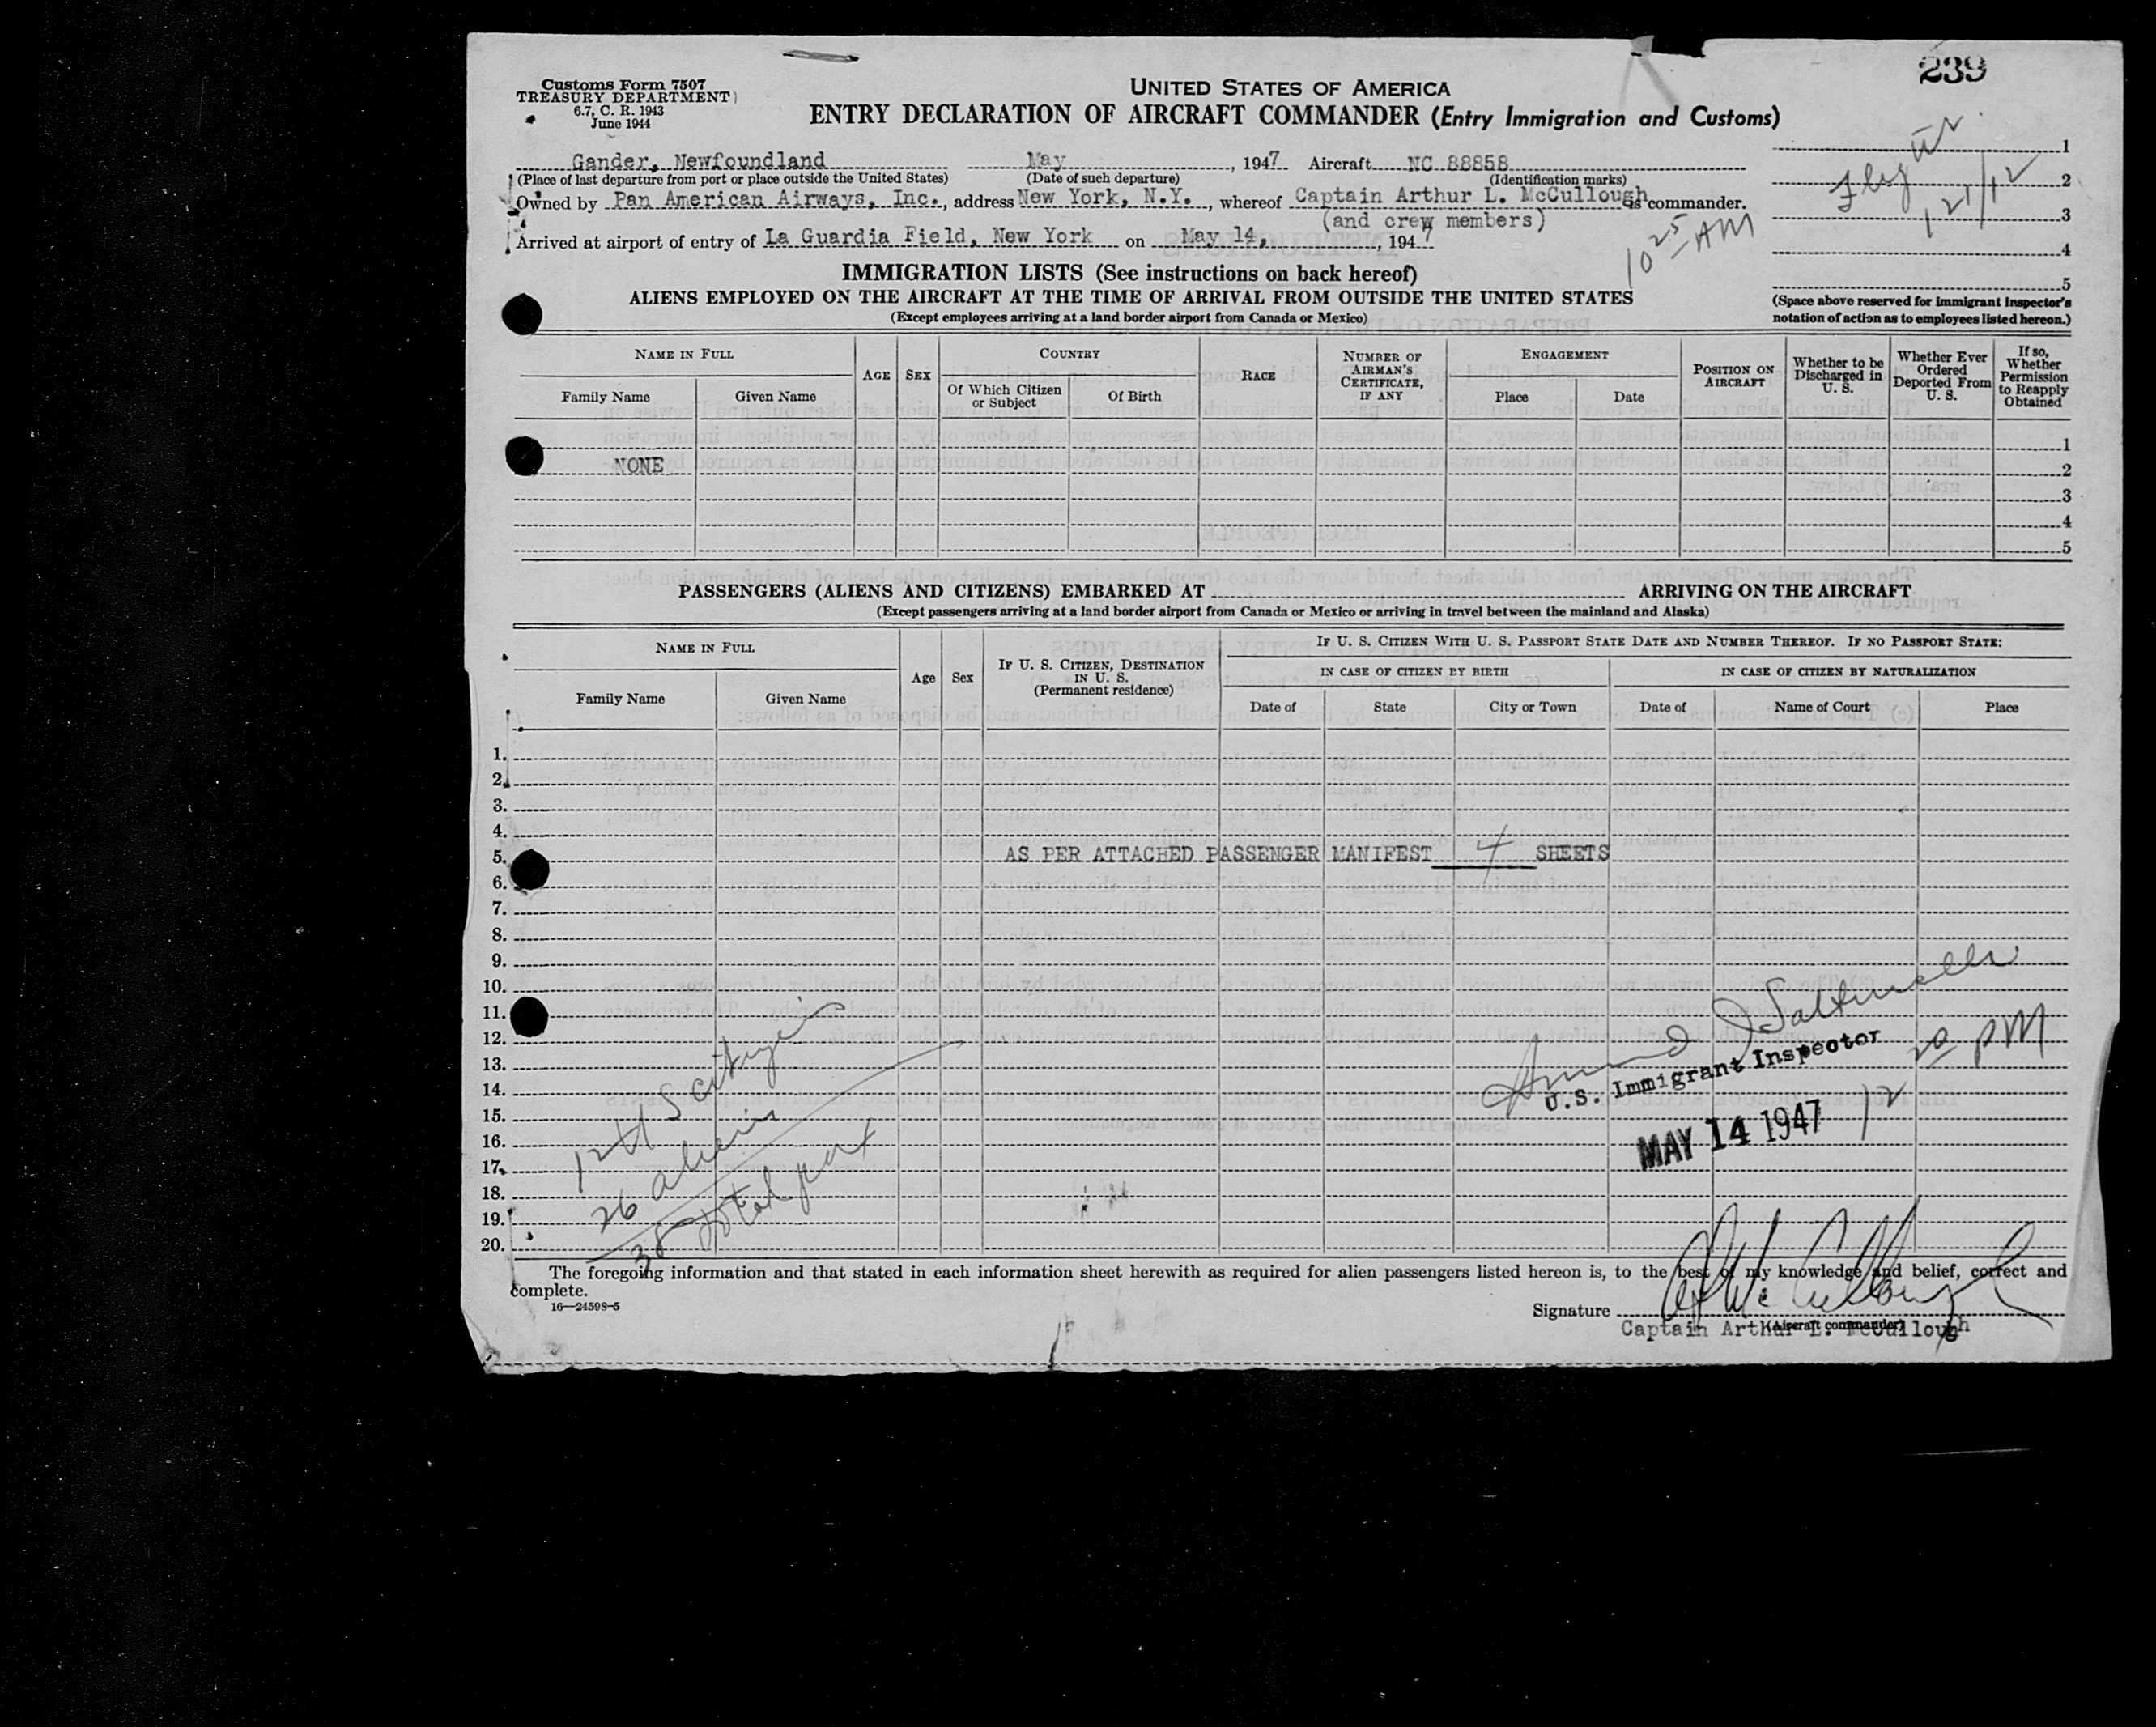 239
Customs Form 7507
TREASURY DEPARTMENT
6.7, C. R. 1943
June 1944
UNITED STATES OF AMERICA
ENTRY DECLARATION OF AIRCRAFT COMMANDER (Entry Immigration and Customs)
Gander, Newfoundland May , 1947 Aircraft NC 88858
(Place of last departure from port or place outside the United States) (Date of such departure) (Identification marks)
Owned by Pan American Airways, Inc., address New York, N.Y., whereof Captain Arthur L. McCullough is commander.
(and crew members)
Arrived at airport of entry of La Guardia Field, New York on May 14, , 1947
10 25 AM
121/12
1
2
3
4
5
(Space above reserved for immigrant inspector's
notation of action as to employees listed hereon.)
IMMIGRATION LISTS (See instructions on back hereof)
ALIENS EMPLOYED ON THE AIRCRAFT AT THE TIME OF ARRIVAL FROM OUTSIDE THE UNITED STATES
(Except employees arriving at a land border airport from Canada or Mexico)
NAME IN FULL
Family Name Given Name
AGE SEX
COUNTRY
Of Which Citizen or Subject Of Birth
RACE
NUMBER OF AIRMAN'S CERTIFICATE, IF ANY
ENGAGEMENT
Place Date
POSITION ON AIRCRAFT
Whether to be Discharged in U. S.
Whether Ever Ordered Deported From U. S.
If so, Whether Permission to Reapply Obtained
1
NONE 2
3
4
5
PASSENGERS (ALIENS AND CITIZENS) EMBARKED AT ARRIVING ON THE AIRCRAFT
(Except passengers arriving at a land border airport from Canada or Mexico or arriving in travel between the mainland and Alaska)
NAME IN FULL
Family Name Given Name
Age Sex
IF U. S. CITIZEN, DESTINATION IN U. S. (Permanent residence)
IF U. S. CITIZEN WITH U. S. PASSPORT STATE DATE AND NUMBER THEREOF. IF NO PASSPORT STATE:
IN CASE OF CITIZEN BY BIRTH IN CASE OF CITIZEN BY NATURALIZATION
Date of State City or Town Date of Name of Court Place
1.
2.
3.
4.
5. AS PER ATTACHED PASSENGER MANIFEST 4 SHEETS
6.
7.
8.
9.
10.
11.
12.
13.
14.
15.
16.
17.
18.
19.
20.
12 U S citizens
26 aliens
38 total pax
U.S. Immigrant Inspector
MAY 14 1947 12 20 PM
The foregoing information and that stated in each information sheet herewith as required for alien passengers listed hereon is, to the best of my knowledge and belief, correct and
complete.
16—24598-5
Signature
(Aircraft commander)
Captain Arthur L. McCullough